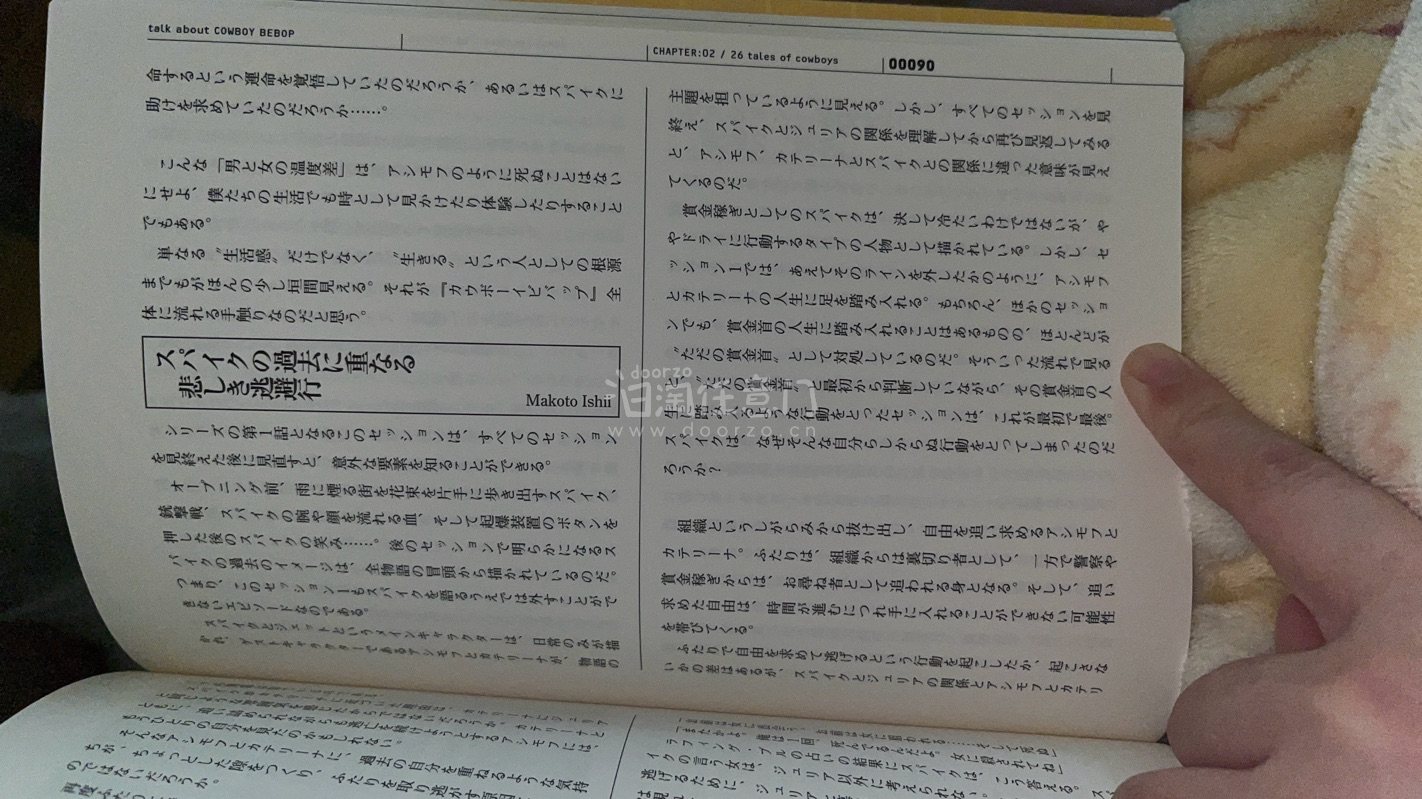 talk about COWBOY BEBOP
CHAPTER:02 / 26 tales of cowboys
00090
命するという運命を覚悟していたのだろうか、あるいはスパイクに
助けを求めていたのだろうか……。
こんな「男と女の温度差」は、アシモフのように死ぬことはない
にせよ、僕たちの生活でも時として見かけたり体験したりすること
でもある。
単なる〝生活感〟だけでなく、〝生きる〟という人としての根源
までもがほんの少し垣間見える。それが『カウボーイビバップ』全
体に流れる手触りなのだと思う。
スパイクの過去に重なる
悲しき逃避行
Makoto Ishii
シリーズの第1話となるこのセッションは、すべてのセッション
を見終えた後に見直すと、意外な要素を知ることができる。
オープニング前、雨に煙る街を花束を片手に歩き出すスパイク、
銃撃戦、スパイクの腕や顔を流れる血、そして起爆装置のボタンを
押した後のスパイクの笑み……。後のセッションで明らかになるス
パイクの過去のイメージは、全物語の冒頭から描かれているのだ。
つまり、このセッション1もスパイクを語るうえでは外すことがで
きないエピソードなのである。
スパイクとジェットというメインキャラクターは、日常のみが描
かれ、ゲストキャラクターであるアシモフとカテリーナが、物語の
主題を担っているように見える。しかし、すべてのセッションを見
終え、スパイクとジュリアの関係を理解してから再び見返してみる
と、アシモフ、カテリーナとスパイクとの関係に違った意味が見え
てくるのだ。
賞金稼ぎとしてのスパイクは、決して冷たいわけではないが、や
やドライに行動するタイプの人物として描かれている。しかし、セ
ッション1では、あえてそのラインを外したかのように、アシモフ
とカテリーナの人生に足を踏み入れる。もちろん、ほかのセッショ
ンでも、賞金首の人生に踏み入れることはあるものの、ほとんどが
〝ただの賞金首〟として対処しているのだ。そういった流れで見る
と、〝ただの賞金首〟と最初から判断していながら、その賞金首の人
生に踏み入るような行動をとったセッションは、これが最初で最後。
スパイクは、なぜそんな自分らしからぬ行動をとってしまったのだ
ろうか？
組織というしがらみから抜け出し、自由を追い求めるアシモフと
カテリーナ。ふたりは、組織からは裏切り者として、一方で警察や
賞金稼ぎからは、お尋ね者として追われる身となる。そして、追い
求めた自由は、時間が進むにつれ手に入れることができない可能性
を帯びてくる。
ふたりで自由を求めて逃げるという行動を起こしたか、起こさな
いかの差はあるが、スパイクとジュリアの関係とアシモフとカテリ
ともに、追い詰められながらも逃亡を続けようとするアシモフには、
もうひとりの自分を見たのかもしれない。
そんなアシモフとカテリーナに、過去の自分を重ねるような気持
ちが、ちょっとした隙をつくり、ふたりを取り逃がす
のではないだろうか。
再度ふたり
「またかよ。俺は一回、死んでるんだよ。女に殺されてね」
ラフィング・ブルの占いの結果にスパイクは、こう答える。ス
イクの言う女は、ジュリア以外に考えられない。
逃げるために、ジュリア
doorzo
泊淘任意门
www.doorzo.cn